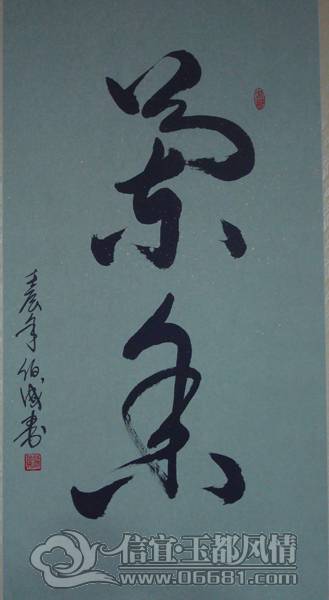 蘭香
壬辰年 伯成书
信宜·玉都风情
www.06681.com